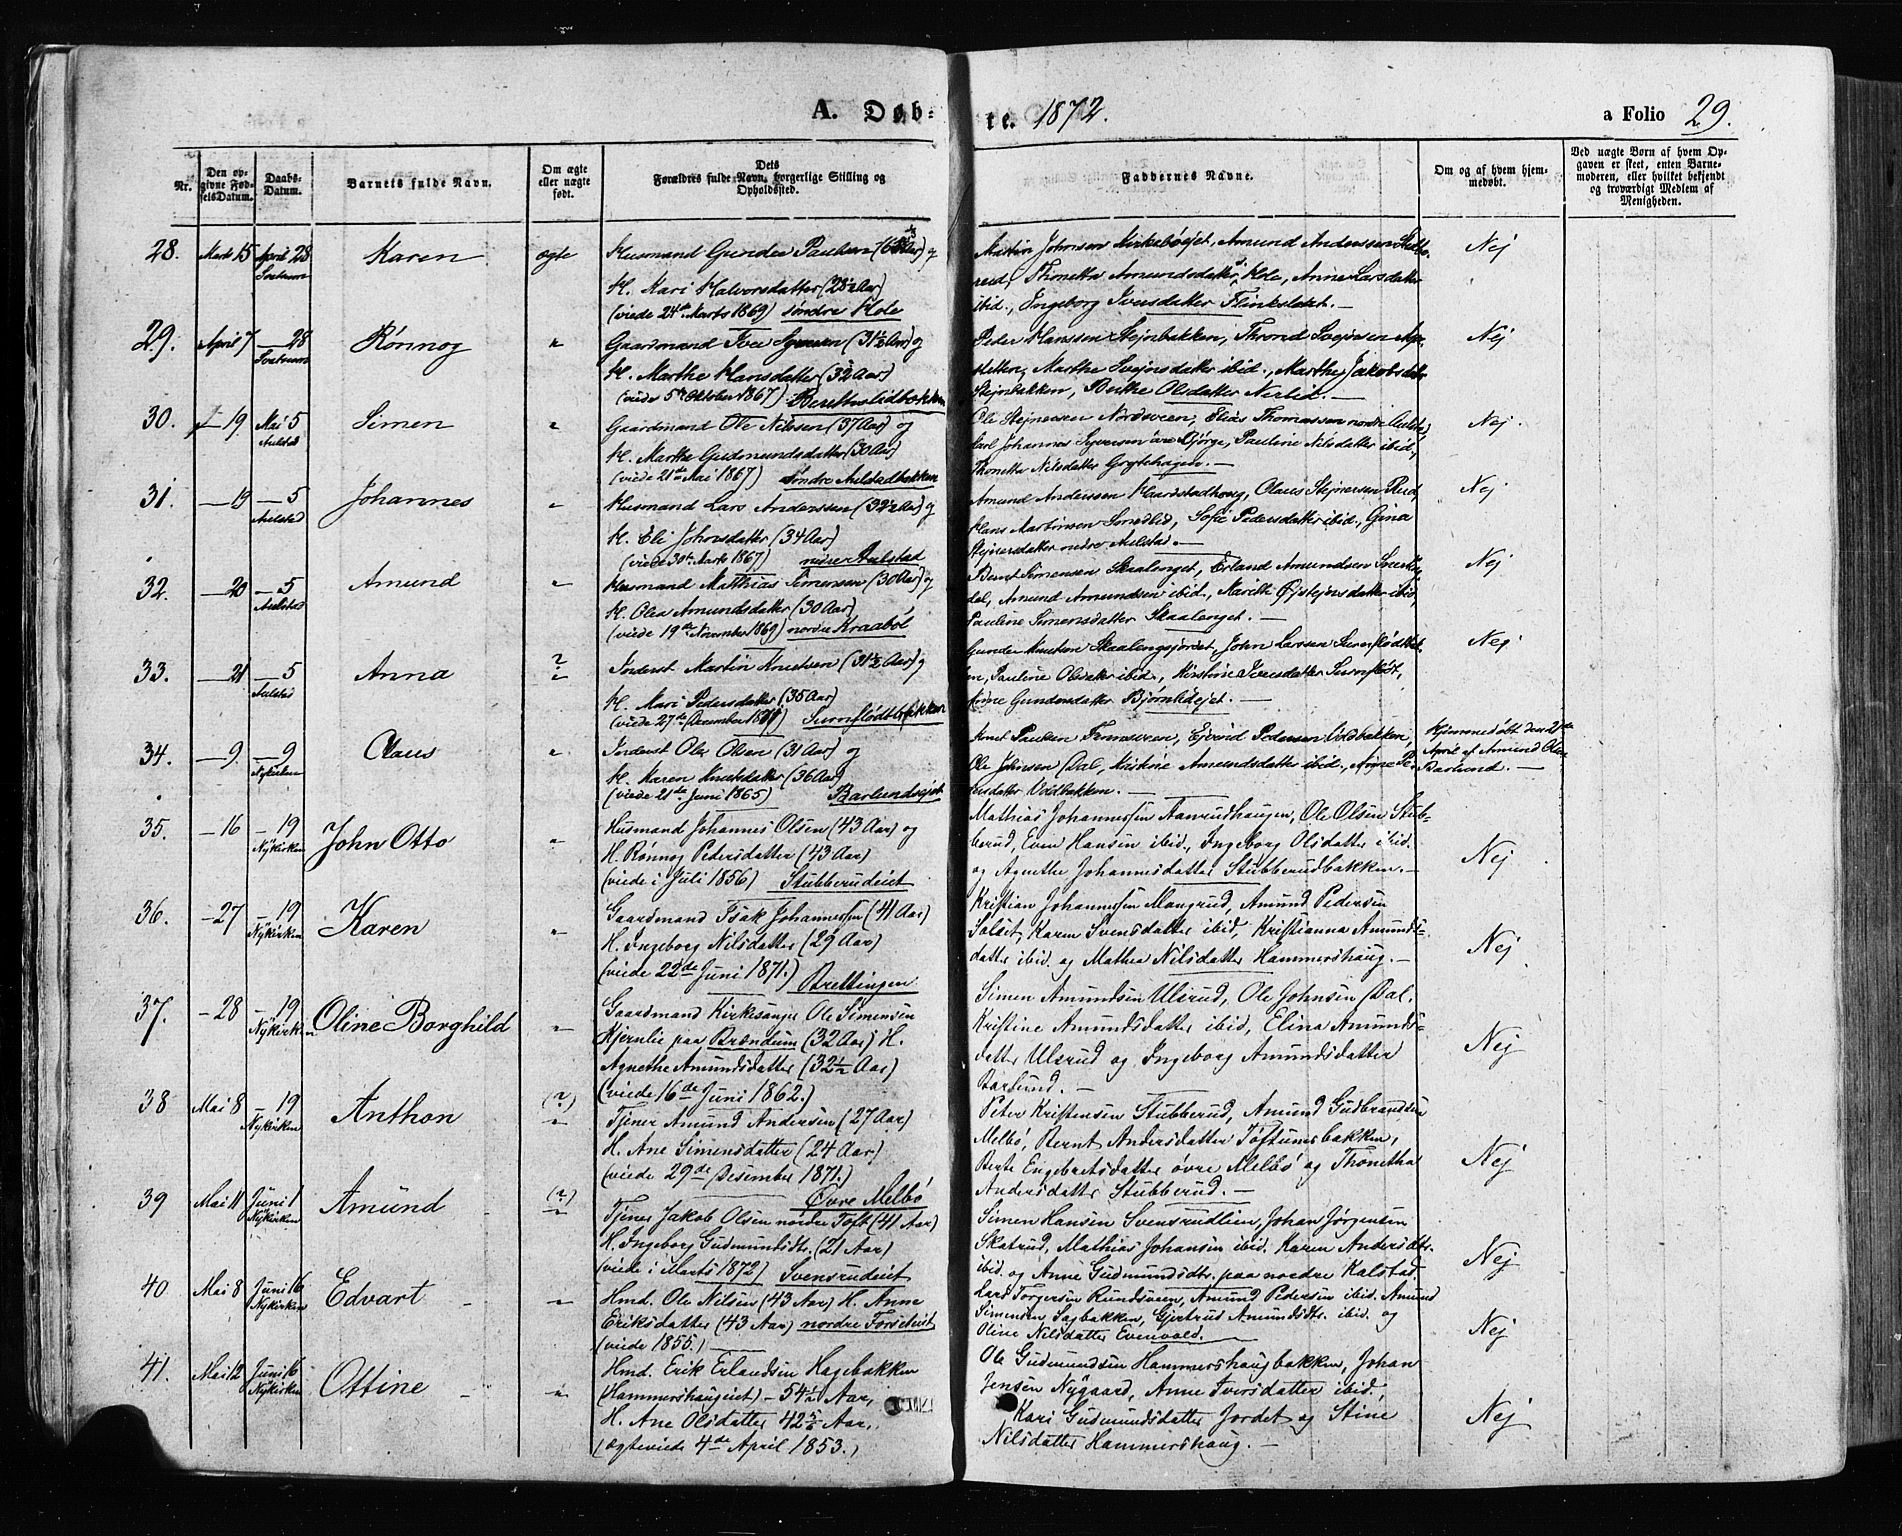 A. Døb-
te. 1872.
a Folio 29.
Nr.
Den op-
givne Fød-
selsDatum.
Daabs-
Datum.
Barnets fulde Navn.
Om ægte
eller uægte
født.
Dets
Forældres fulde Navn, borgerlige Stilling og
Opholdssted.
Faddernes Navne.
Om og af hvem hjem-
medøbt.
Ved uægte Børn af hvem Op-
gaven er skeet, enten Barne-
moderen, eller hvilket bekjendt
og troværdigt Medlem af
Menigheden.
28. Marts 15 April 28 Karen ægte Husmand Gunder Paulsen
H. Mari Halvorsdatter (28½ Aar)
(viede 24de Marts 1869) søndre Hole
Martin Johnsen Kirkebøejet, Amund Anderssen
Thonetta Amundsdatter Hole, Anne Larsdatter
ibid., Ingeborg Iversdatter —
Nej
29. April 7 — 28 Rønnog " Gaardmand Iver Syversen (31½ Aar) og
H. Marthe Hansdatter (32 Aar)
(viede 5te Oktober 1867)
Peder Hanssen Stejnbakken, Thrond
Marthe Svejnsdatter ibid., Marthe Jakobsdatter
Stejnbakken, Berthe Olsdatter Nerlid. —
Nej
30. — 19 Mai 5 Aulstad Simen " Gaardmand Ole Nilssen (37 Aar) og
H. Marthe Gudmundsdatter (30 Aar)
(viede 21de Mai 1867) søndre Aulstadbakken
Ole Stejnersen Nordsveen, Elias Thomassen nordre Aulstad,
Carl Johannes Syversen øvre Bjørge, Pauline Nilsdatter ibid.,
Thonetta Nilsdatter Grytehagen. —
Nej
31. — 19 — 5 Aulstad Johannes " Husmand Lars Anderssen (32½ Aar) og
H. Eli Johnsdatter (34 Aar)
(viede 30te Marts 1867) nedre Aulstad
Amund Anderssen Haardstadhoug, Olaus Stejnersen Rud,
Hans Martinsen Smedlid, Sofie Pedersdatter ibid., Gina
Stejnersdatter nedre Aulstad. —
Nej
32. — 20 — 5 Aulstad Amund " Husmand Matthias Simensen (30 Aar) og
H. Olea Amundsdatter (30 Aar)
(viede 19de November 1869) nordre Kraabøl
Bernt Simensen Skaalenget, Erland Amundsen
Amund Amundsen ibid., Marith Øjstejnsdatter ibid.,
Pauline Simensdatter Skaalenget. —
Nej
33. — 21 — 5 Aulstad Anna ? " Inderst Martin Knutsen (31½ Aar) og
H. Mari Pedersdatter (35 Aar)
(viede 27de December 1871) Surnflødtbakken
Gunder Knutsen Skaalengsjordet, John Larsen
Pauline Olsdatter ibid., Kirstine Iversdatter Surnfløt,
Anne Gundersdatter Bjørnlidejet. —
Nej
34. — 9 — 9 Nykirken Olaus " Inderst Ole Olsen (31 Aar) og
H. Karen Knutsdatter (36 Aar)
(viede 21de Juni 1865) Barlundsejet
Knut Paulsen Tromsveen, Ejvind Pedersen Voldbakken,
Ole Johnsen Dal, Kristine Amundsdatter ibid., Anne Pe-
dersdatter Voldbakken. —
Hjemmedøbt den 21de
April af Amund Olsen
Barlund. —
35. — 16 — 19 Nykirken John Otto " Husmand Johannes Olsen (43 Aar) og
H. Rønnog Pedersdatter (43 Aar)
(viede i Juli 1856) Stubberudeiet
Mathias Johannessen Aanrudhaugen, Ole Olsen Stub-
berud, Even Hansen ibid., Ingeborg Olsdatter ibid.
og Agnethe Johannesdatter Stubberudbakken. —
Nej
36. — 27 — 19 Nykirken Karen " Gaardmand Isak Johannessen (41 Aar)
H. Ingeborg Nilsdatter (29 Aar)
(viede 22de Juni 1871.) Brettingen
Kristian Johannessen Mangrud, Amund Pedersen
Solset, Karen Svensdatter ibid, Kristianna Amunds-
datter ibid. og Mathea Nilsdatter Hammershaug. —
Nej
37. — 28 — 19 Nykirken Oline Borghild " Gaardmand Kirkesanger Ole Simensen
Hjernlie paa Brændum (32 Aar) H.
Agnethe Amundsdatter (32½ Aar)
(viede 16de Juni 1862.)
Simen Amundsen Ulsrud, Ole Johnsen Dal.
Kristine Amundsdatter ibid, Elina Amunds-
datter Ulsrud og Ingeborg Amundsdatter
Barlund. —
Nej
38 Mai 8 — 19 Nykirken Anthon (?) " Tjener Amund Andersen (27 Aar)
H. Ane Simensdatter (24 Aar)
(viede 29de Desember 1871.)
Øvre Melbö
Peter Kristensen Stubberud, Amund Gudbrandsen
Melbö, Bernt Andersdatter Töftumsbakken,
Berte Engebretsdatter övre Melbö og Thonetha
Andersdatter Stubberud. —
Nej
39 Mai 11 Juni 1 Nykirken Amund (?) " Tjener Jakob Olsen nordre Toft (41 Aar)
H. Ingeborg Gudmundsdtr. (21 Aar)
(viede i Marts 1872) Svensrudeiet
Simen Hansen Svensrudlien, Johan Jörgensen
Skatrud, Mathias Johansen ibid. Karen Andersdtr.
ibid. og Anne Gudmundsdtr. paa nordre Kalstad.
Nej
40 Mai 8 Juni 16 Nykirken Edvart " Hmd. Ole Nilsen (43 Aar) H. Anne
Eriksdatter (43 Aar) nordre Forseteiet
(viede 1855.)
Lars Torgersen Rundsveen, Amund Pedersen ibid. Amund
Simensen Sagbakken, Gjertrud Amundsdtr. ibid. og
Oline Nilsdatter Evenvold.
Nej
41. Mai 12 Juni 16 Nykirken Ottine " Hmd. Erik Erlandsen Hagebakken
(Hammershaugeiet) — 54½ Aar,
H. Ane Olsdatter 42 Aar,
(ægteviede 4de April 1853.)
Ole Gudmundsen Hammershaugbakken, Johan
Jensen Nygaard, Anne Iversdatter ibid.,
Kari Gudmundsdatter Jordet og Stine
Nilsdatter Hammershaug. —
Nej